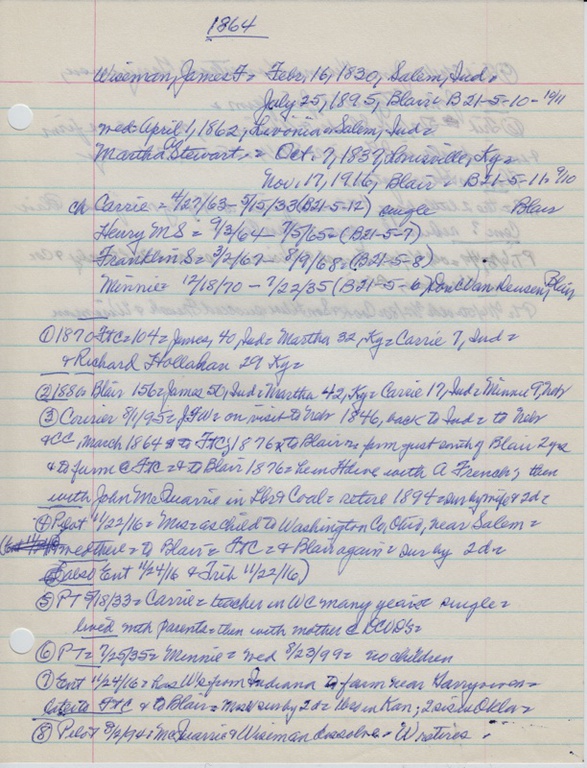 1864
Wiseman, James F = Feb. 16, 1830, Salem, Ind =
July 25, 1895, Blair = B21-5-10 - 10/11
wed = April 1, 1862, Livonia = Salem, Ind =
Martha Stewart = Oct. 7, 1837, Louisville, Ky =
Nov. 17, 1916, Blair = B21-5-11 9/10
ch Carrie = 4/27/63 - 5/15/33 (B21-5-12) single Blair
Henry M S = 9/3/64 - 7/5/65 = (B21-5-7)
Franklin S = 3/2/67 - 8/9/68 = (B21-5-8)
Minnie = 12/18/70 - 7/22/35 (B21-5-6) Van Deusen, Blair
① 1870 FtC = 104 = James, 40, Ind = Martha 32, Ky = Carrie 7, Ind =
& Richard Hollahan 29 Ky =
② 1880 Blair 156 = James 50, Ind = Martha 42, Ky = Carrie 17, Ind = Minnie 9, Neb
③ Courier 8/1/95 = JFW = on visit to Nebr 1846, back to Ind = to Nebr
& CC, March 1864 to FtC; 1876 to Blair = farm just south of Blair 2 yrs
& to farm C FtC = & to Blair 1876 = with A French; then
with John McQuarrie in Lbr & Coal = retire 1894 = sur by wife & 2d =
④ Pilot 11/22/16 = Mrs = as child to Washington Co, Ohio, near Salem =
wed there = to Blair = FtC = & Blair again = sur by 2d =
(also Ent 11/24/16 & Trib 11/22/16)
⑤ PT 5/18/33 = Carrie = teacher in WC many years = single =
lived with parents = then with mother
⑥ PT = 7/25/35 = Minnie = wed 8/23/99 = no children
⑦ Ent 11/24/16 = Mrs W = from Indiana to farm near
FtC & to Blair = Mrs sur by 2d = 1 bro in Kan; 2 sis in Okla =
⑧ Pilot 8/2/94 = McQuarrie & Wiseman dissolve = W retires.